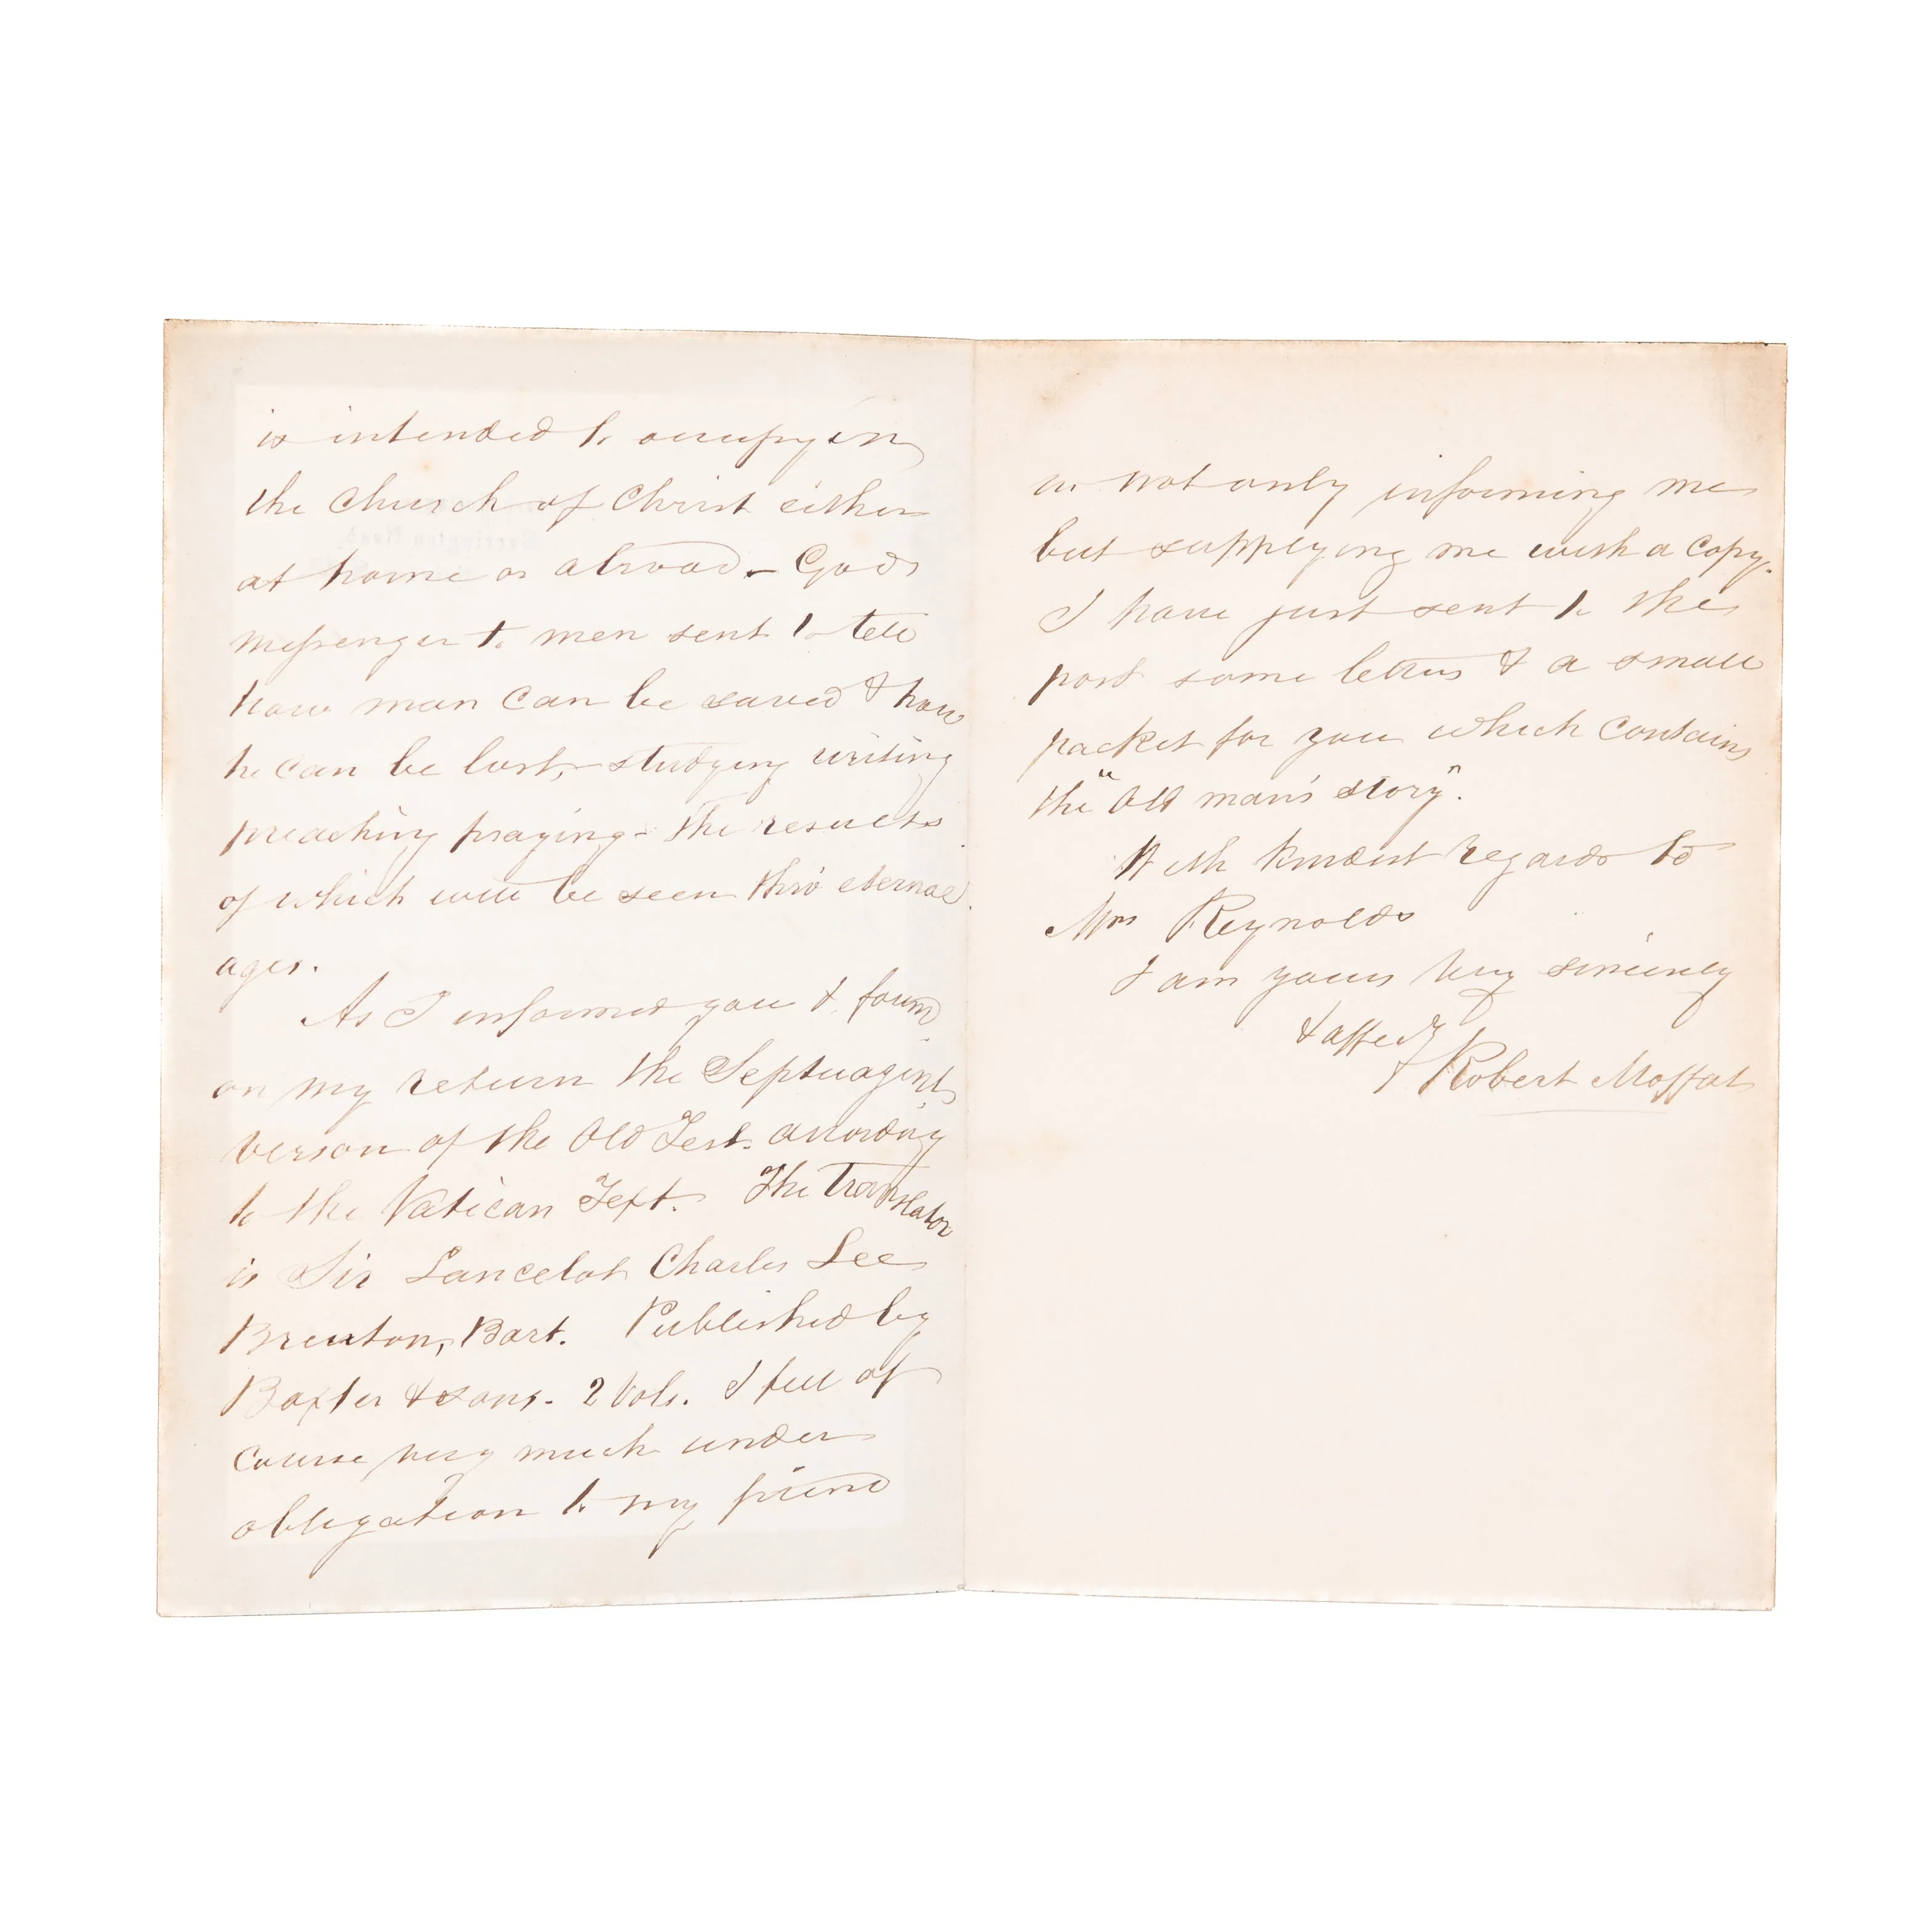 is intended to occupy in
the Church of Christ either
at home or abroad. – Gods
messenger to men sent to tell
how man can be saved & how
he can be lost, – studying writing
preaching praying – The results
of which will be seen thro' eternal
ages.
As I informed you I found
on my return the Septuagint
version of the Old Test. according
to the Vatican Text. The Translator
is Sir Lancelot Charles Lee
Brenton, Bart. Published by
Baxter & sons. 2 Vols. I feel of
course very much under
obligation to my friend
in not only informing me
but supplying me with a copy.
I have just sent to the
post some letters & a small
packet for you which contains
the "Old man's story".
With kindest regards to
Mrs Reynolds
I am yours very sincerely
& affecly
Robert Moffat